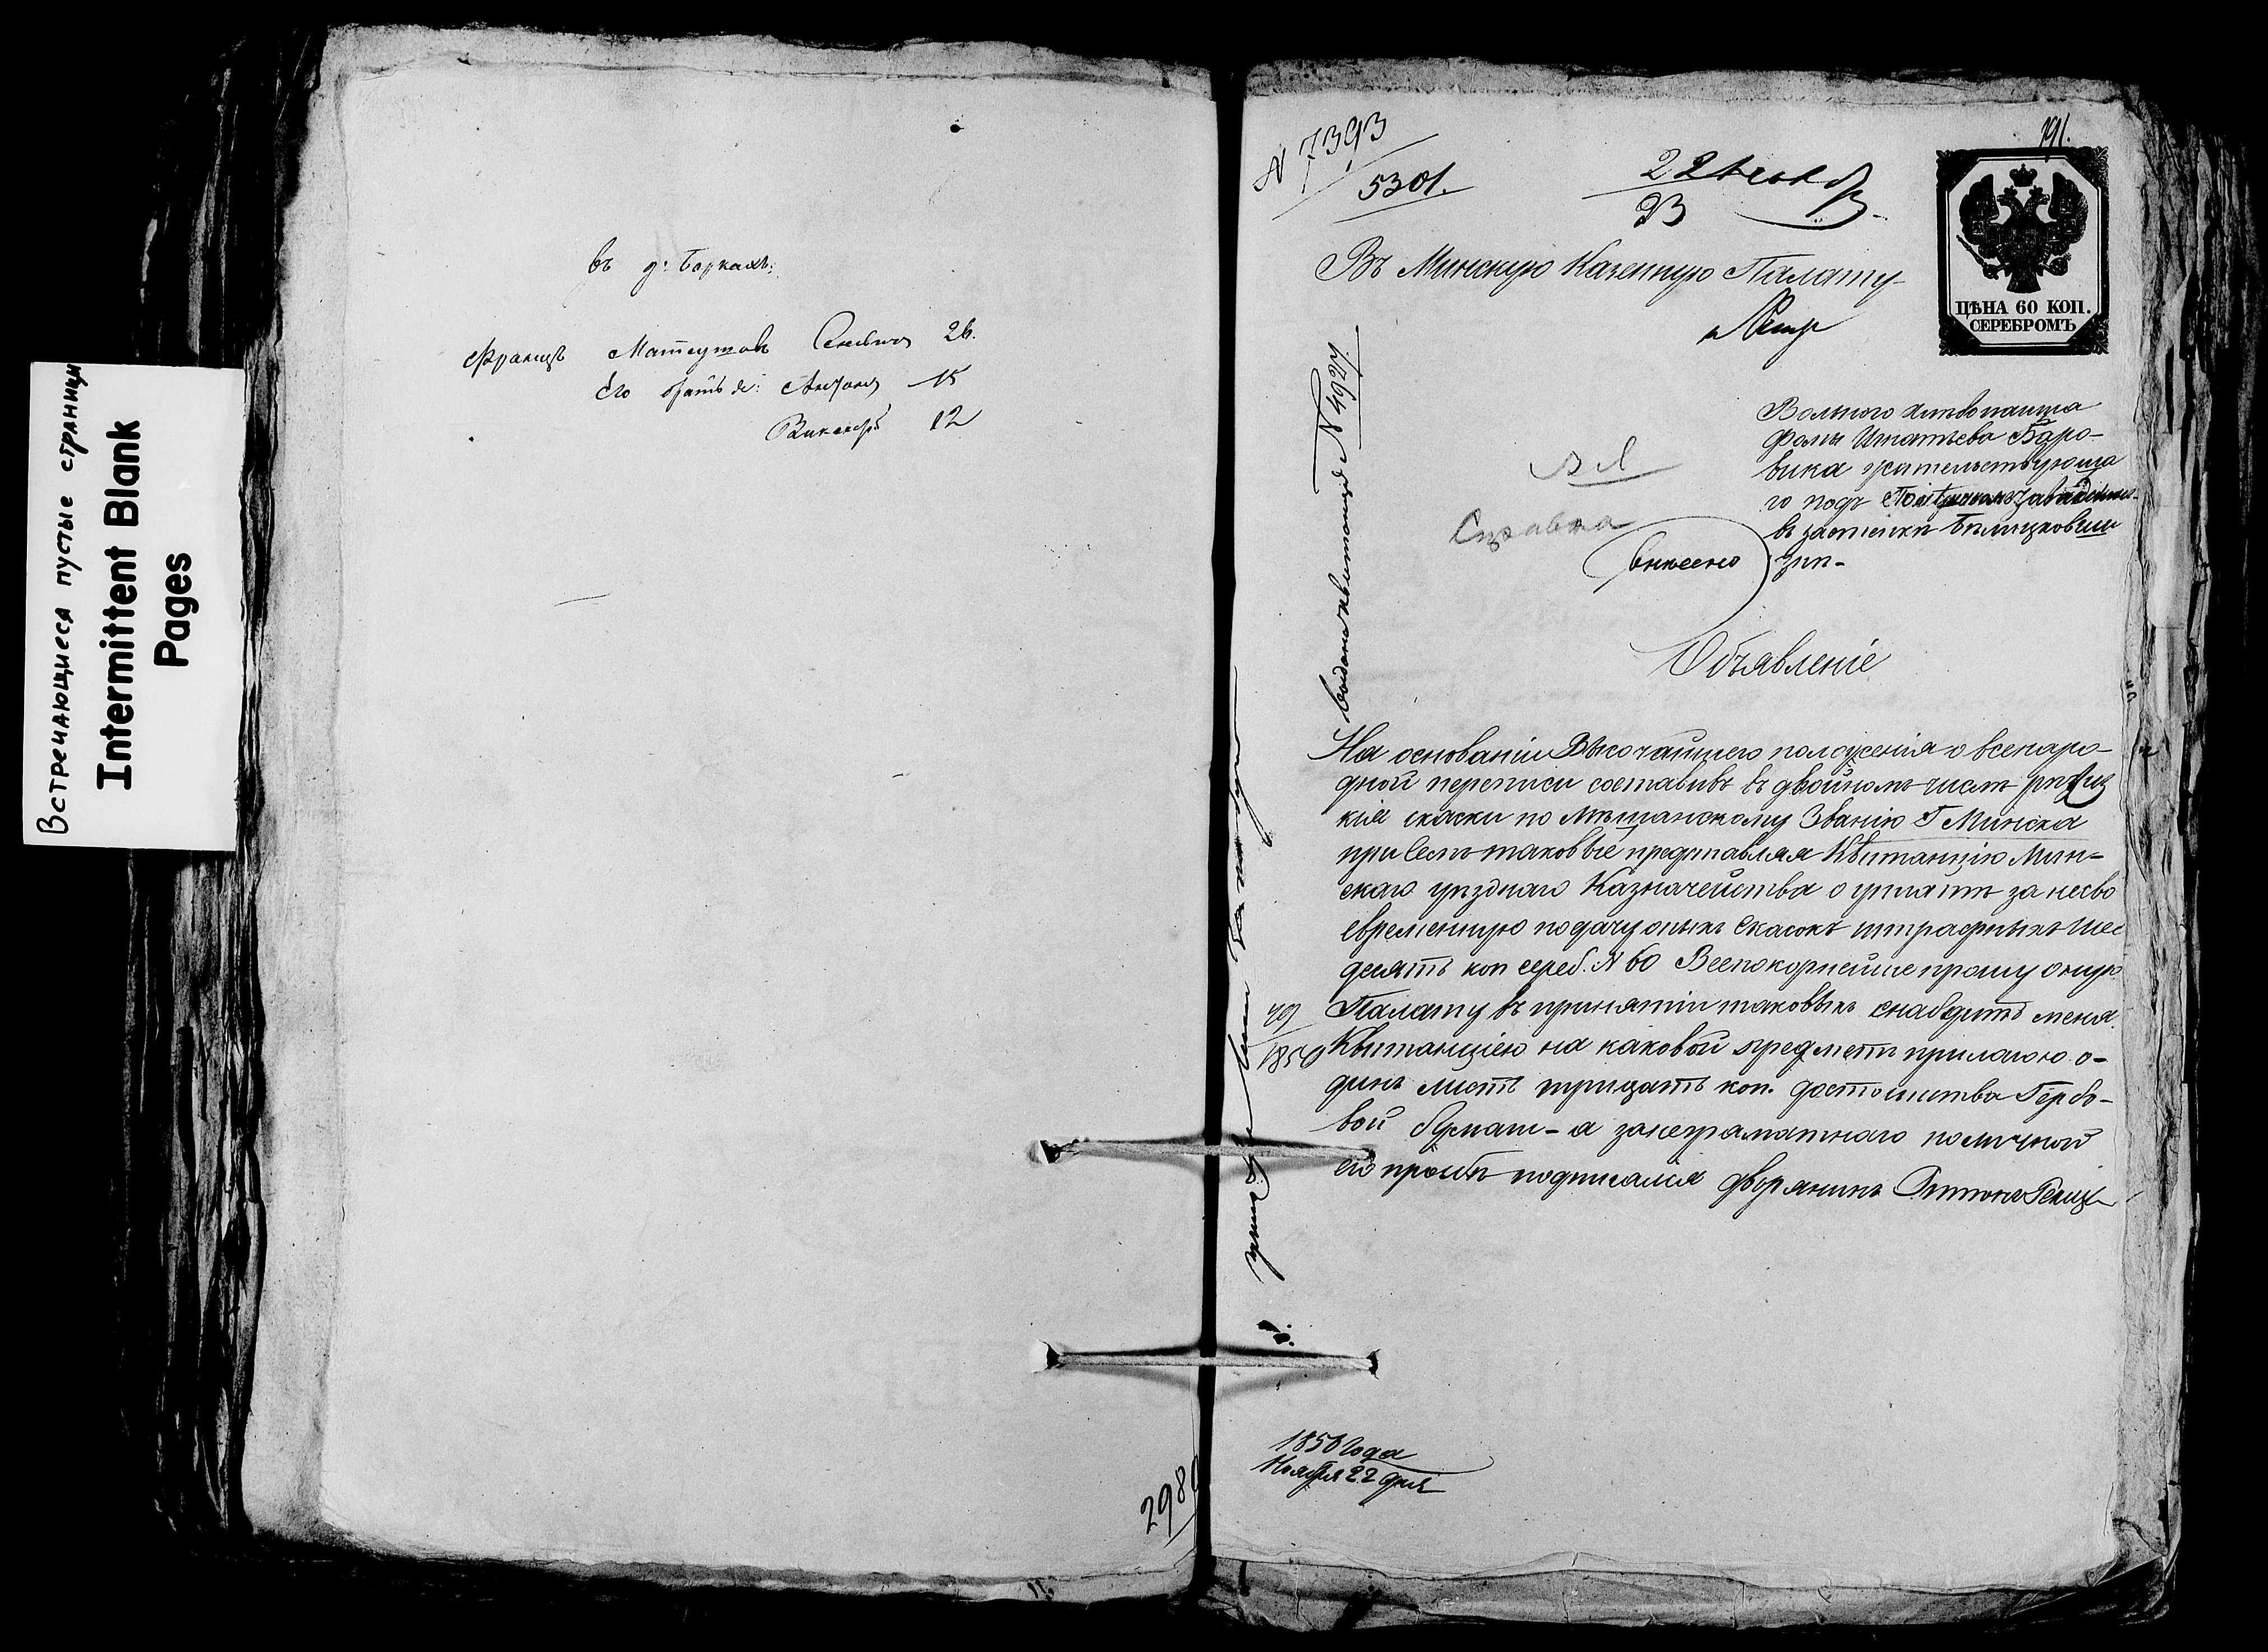 Встречающиеся пустые страницы
Intermittent Blank
Pages
въ д: Боркахъ:
Францъ Матеушовъ 26.
Его братья: Антонъ 15
Викентій 12
2980
191.
N 7393
5301.
22 Ноябр
23
ЦѢНА 60 КОП.
СЕРЕБРОМЪ
Въ Минскую Казенную Палату
Вольного хлѣбопашца
Фомы Игнатьева Боро-
вика жительствующа
го подъ
въ застенкѣ
Справка
внесено
выдана квитанція N 4927.
Объявленіе
На основаніи Высочайшего положенія о всенаро-
дной переписи составивъ въ двойномъ числѣ
кія скаски по Мѣщанскому Званію Г Минска
при семъ таковые представляя Квитанцію Мин-
скаго уѣзднаго Казначейства о уплатѣ за несво
евременную подачу оныхъ скасокъ штрафныхъ шес
десятъ коп сереб. N 60 Всепокорнейше прошу оную
Палату въ принятіи таковыхъ снабдить меня
Квитанціею на каковой предметъ прилагаю о-
динъ листъ тридцать коп. достоинства Гербо-
вой бумаги - а за неграматнаго по личной
его прозбѣ подписался дворянинъ Антонъ
1850
1850 Года
Ноября 22 дня